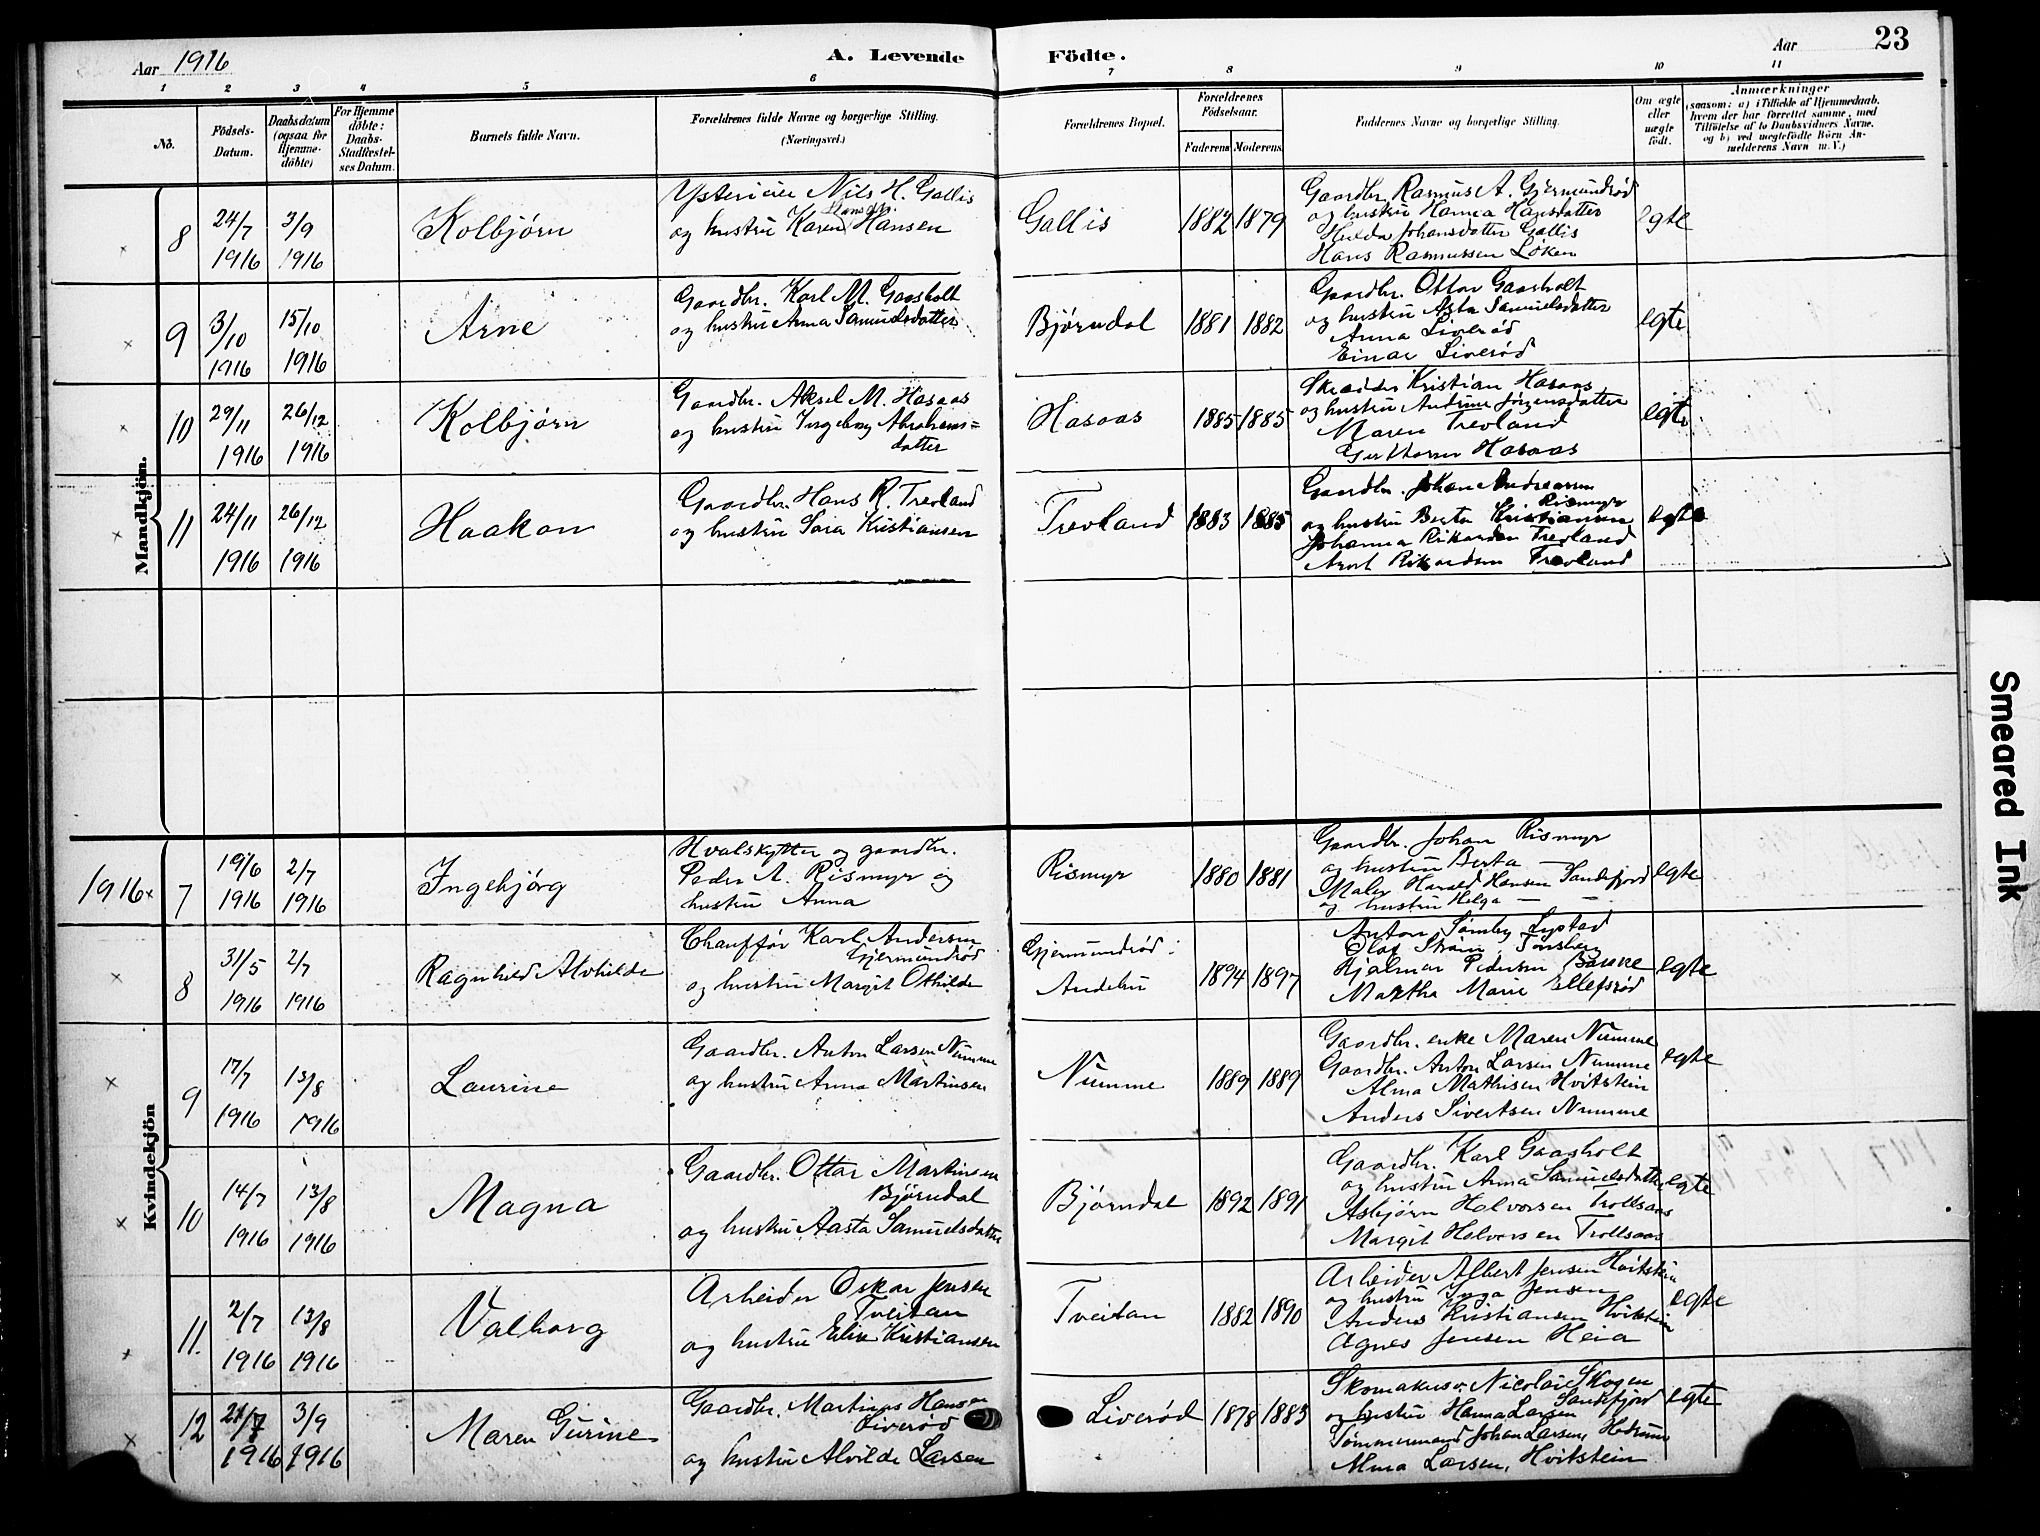 Aar 1916
A. Levende Födte.
Aar
23
1 2 3 4 5 6 7 8 9 10 11
No.
Födsels-Datum.
Daabsdatum (ogsaa for Hjemme-döbte)
For Hjemme döbte: Daabs-Stadfæstel-ses Datum.
Barnets fulde Navn.
Forældrenes fulde Navne og borgerlige Stilling.
(Næringsvei.)
Forældrenes Bopæl.
Forældrenes Födselsaar.
Faderens Moderens
Faddernes Navne og borgerlige Stilling.
Om ægte eller uægte födt.
Anmærkninger
(saasom: a) i Tilfælde af Hjemmedaab,
hvem der har forrettet samme, med
Tilföielse af to Daabsvidners Navne,
og b) ved uægtefödte Börn An-
melderens Navn m. V.)
Mandkjön.
8
24/7 1916
3/9 1916
Kolbjørn
Nils H. Gallis
og hustru Karen Hansen
Gallis
1882 1879
Gaardbr. Rasmus A. Gjermundrød
og hustru Hanna Hansdatter
Hulda Johansdatter Gallis
Hans Rasmussen Løken
egte
9
3/10 1916
15/10 1916
Arne
Gaardbr. Karl M. Gaasholt
og hustru Anna Samuelsdatter
Bjørndal
1881 1882
Gaardbr. Ottar Gaasholt
og hustru Asta Samuelsdatter
Anna Liverød
Einar Liverød
egte
10
29/11 1916
26/12 1916
Kolbjørn
Gaardbr. Aksel M. Hasaas
og hustru Ingeborg Abrahams=
datter
Hasaas
1885 1885
Skrædder Kristian Hasaas
og hustru Andrine Jörgensdatter
Maren Trevland
Hasaas
egte
11
24/11 1916
26/12 1916
Haakon
Gaardbr. Hans R. Trevland
og hustru Sara Kristiansen
Trevland
1883 1885
Gaardbr. Johan Andreassen
Rismyr
og hustru Berta Kristiansen
Johanna Rikardsen Trevland
Rikardsen Trevland
egte
Kvindekjön
1916 x
7
19/6 1916
2/7 1916
Ingebjörg
Hvalskytter og gaardbr.
Peder A. Rismyr og
hustru Anna
Rismyr
1880 1881
Gaardbr. Johan Rismyr
og hustru Berta —
Maler Harald Hansen Sandefjord
og hustru Helga — —
egte
8
31/5 1916
2/7 1916
Ragnhild Alvhilde
Chauffør Karl Andersen
Gjermundrød
og hustru Margit Othilde
Gjermundrød
Andebu
1894 1897
Anton Sømby
Olaf Strøm Tønsberg
Hjalmar Pedersen Bakke
Martha Marie Ellefsrød
egte
9
17/7 1916
13/8 1916
Laurine
Gaardbr. Anton Larsen Numme
og hustru Anna Martinsen
Numme
1889 1889
Gaardbr. enke Maren Numme
Gaardbr. Anton Larsen Numme
Alma Mathisen Hvitstein
Anders Sivertsen Numme
egte
10
14/7 1916
13/8 1916
Magna
Gaardbr. Ottar Martinsen
Bjørndal
og hustru Aasta Samuelsdatter
Bjørndal
1892 1891
Gaardbr. Karl Gaasholt
og hustru Anna Samuelsdatter
Asbjørn Halvorsen Trollsaas
Margit Halvorsen Trollsaas
egte
11.
2/7 1916
13/8 1916
Valborg
Arbeider Oskar Jensen
Tveitan
og hustru Elise Kristiansen
Tveitan
1882 1890
Arbeider Albert Jensen Hvitstein
og hustru Inga Jensen
Anders Kristiansen Hvitstein
Agnes Jensen Heia
egte
12
21/7 1916
3/9 1916
Maren Gurine
Gaardbr. Martinus Hansen
Liverød
og hustru Alvilde Larsen
Liverød
1878 1883
Nicolai Skogen
Sandefjord
og hustru Hanna Larsen
Tømmermand Johan Larsen, Hedrum
Alma Larsen, Hvitstein
egte
Smeared Ink